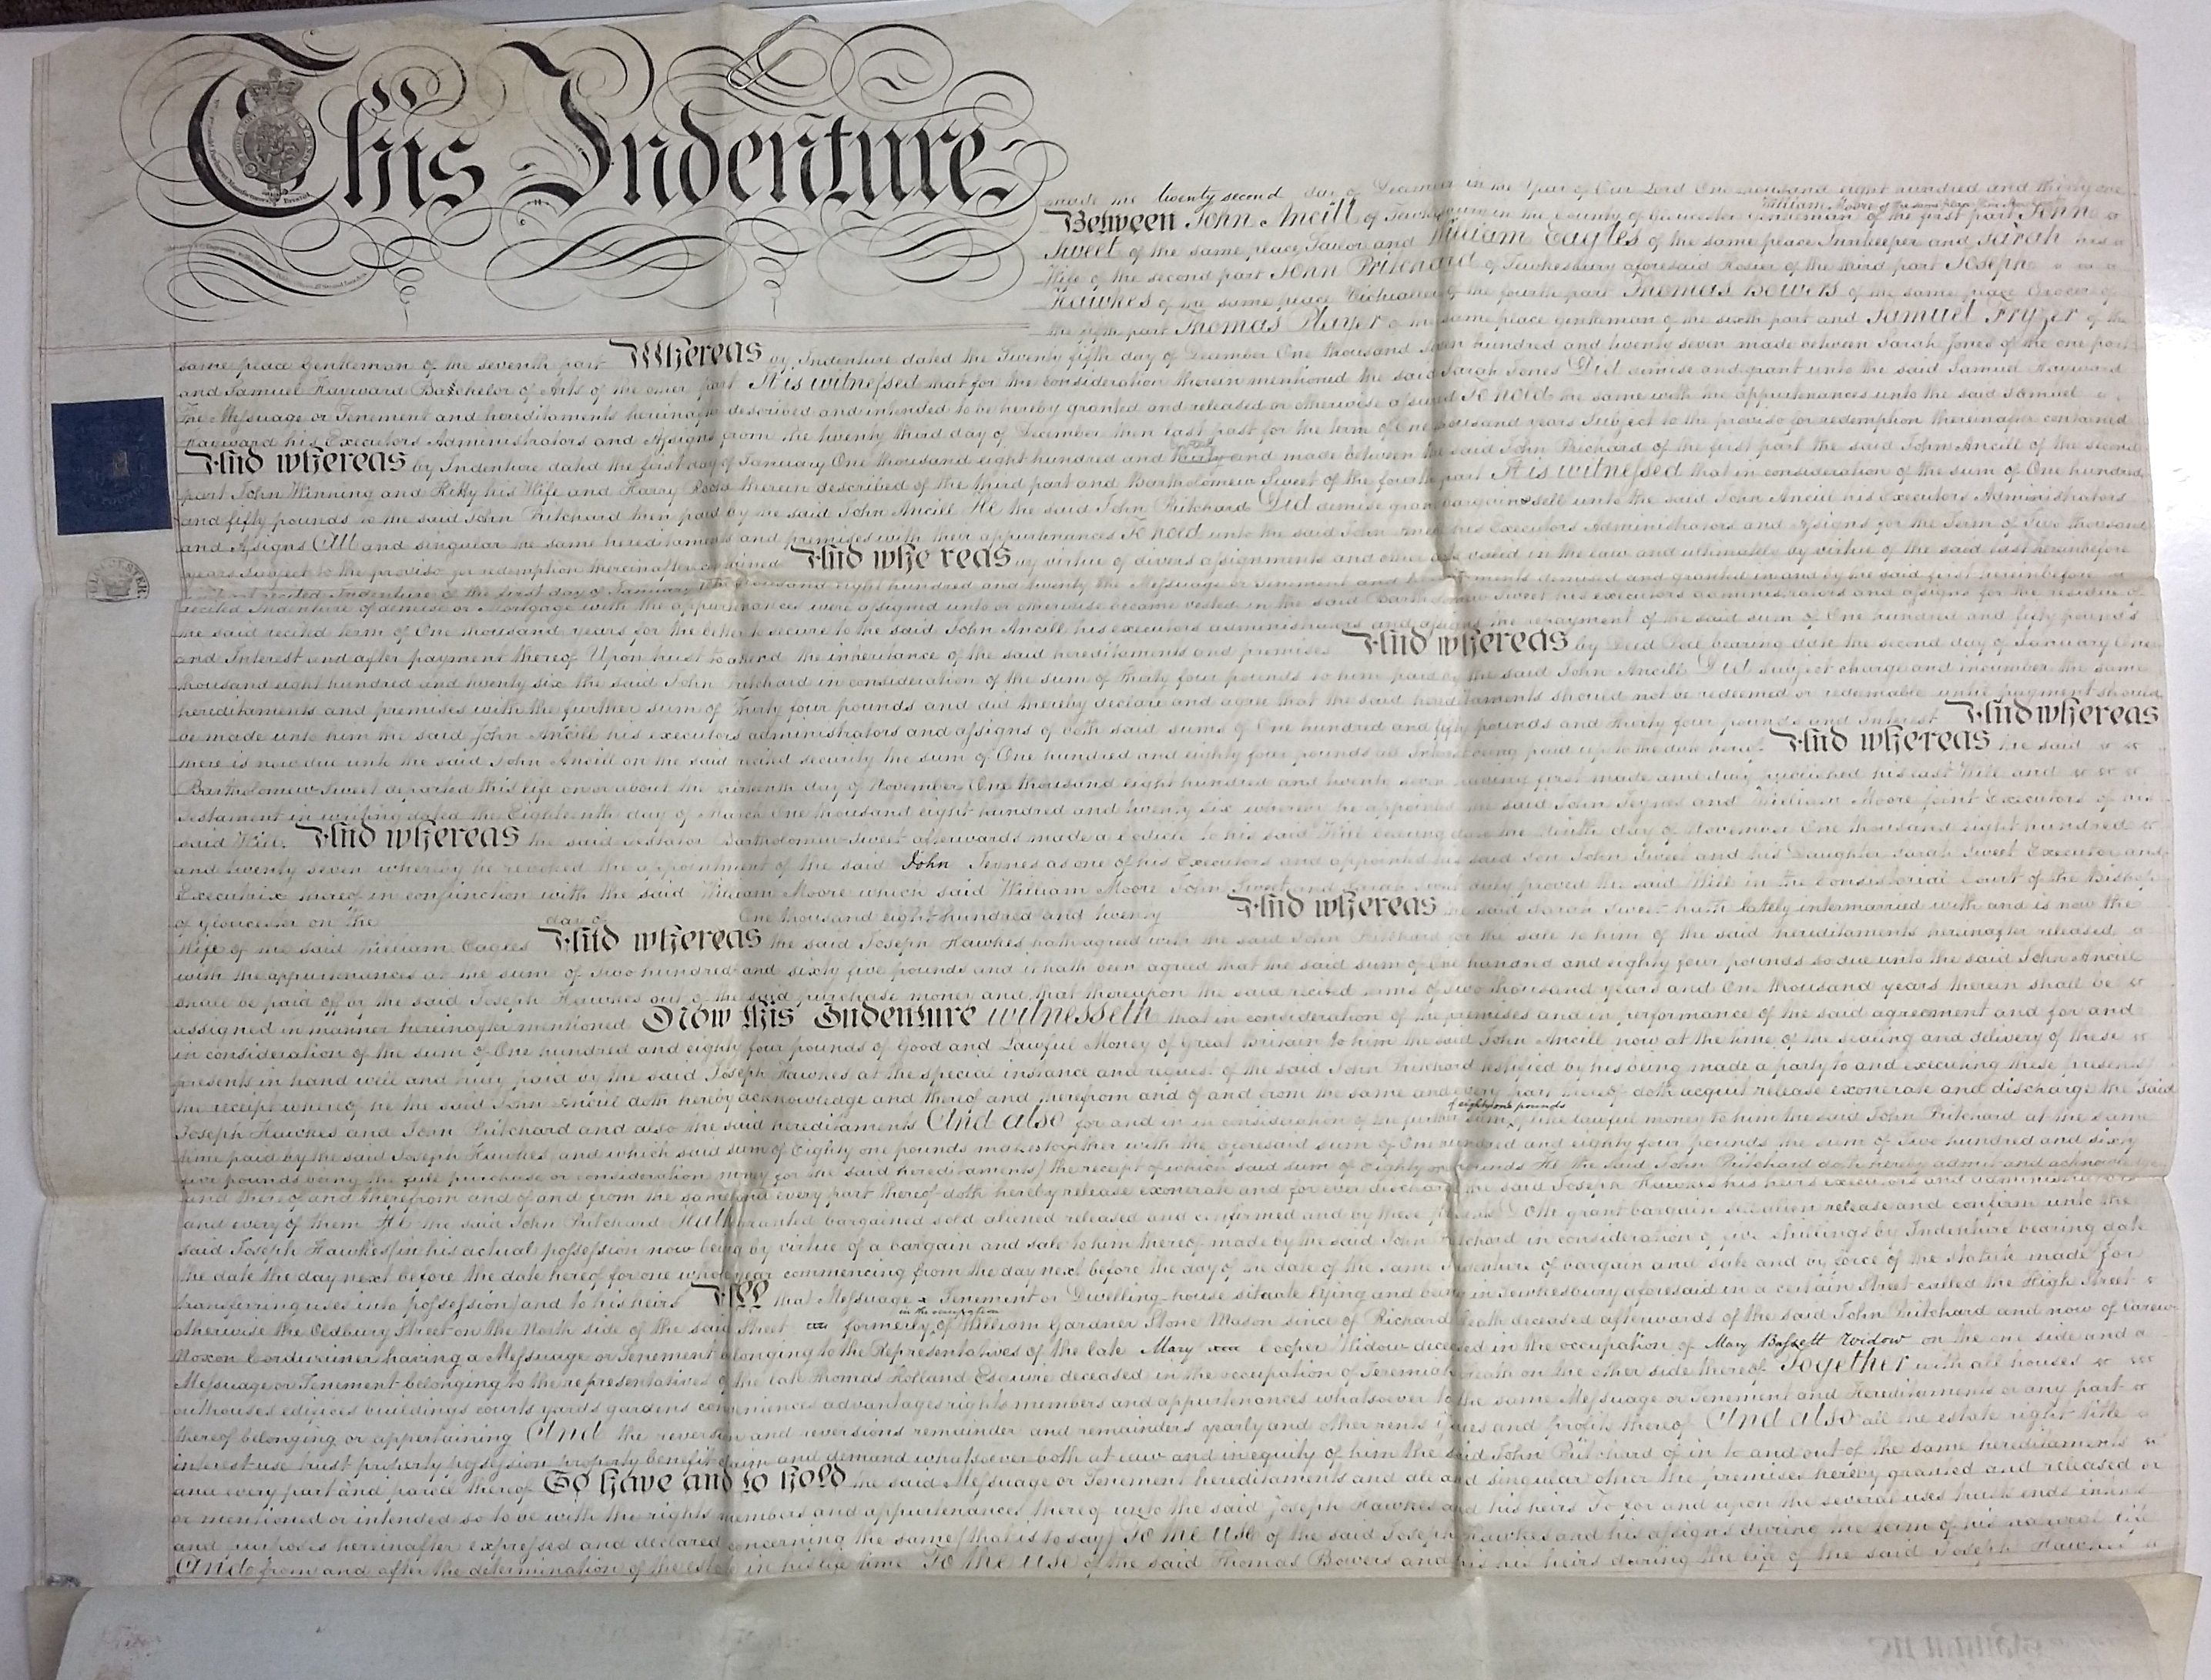 This Indenture
made the twenty second day of December in the Year of Our Lord One thousand eight hundred and thirty one
William Moore of the same place
Between John Ancill of Tewkesbury in the County of Gloucester Gentleman of the first part John
Sweet of the same place Tailor and William Eagles of the same place Innkeeper and Sarah his
Wife of the second part John Pritchard of Tewkesbury aforesaid Hosier of the third part Joseph
Hawkes of the same place Victualler of the fourth part Thomas Bowers of the same place Grocer of
the fifth part Thomas Player of the same place gentleman of the sixth part and Samuel Fryzer of the
same place Gentleman of the seventh part Whereas by Indenture dated the Twenty fifth day of December One thousand seven hundred and twenty seven made between Sarah Jones of the one part
and Samuel Hayward Batchelor of Arts of the other part It is witnessed that for the consideration therein mentioned the said Sarah Jones Did demise and grant unto the said Samuel Hayward
The Messuage or Tenement and hereditaments hereinafter described and intended to be hereby granted and released or otherwise assured To hold the same with the appurtenances unto the said Samuel
Hayward his Executors Administrators and Assigns from the twenty third day of December then last past for the term of One thousand years Subject to the proviso for redemption thereinafter contained
And whereas by Indenture dated the first day of January One thousand eight hundred and and made between the said John Prichard of the first part the said John Ancill of the second
part John Winning and Kitty his Wife and Harry therein described of the third part and Bartholomew Sweet of the fourth part It is witnessed that in consideration of the sum of One hundred
and fifty pounds to the said John Pritchard then paid by the said John Ancill He the said John Pritchard Did demise grant bargain & sell unto the said John Ancill his Executors Administrators
and Assigns All and singular the same hereditaments and premises with their appurtenances To hold unto the said John Ancill his Executors Administrators and Assigns for the Term of Two thousand
years subject to the proviso for redemption thereinafter contained And whereas by virtue of divers assignments and other acts valid in the law and ultimately by virtue of the said last hereinbefore
recited Indenture of the first day of January One thousand eight hundred and twenty the Messuage or Tenement and hereditaments demised and granted in and by the said first hereinbefore
recited Indenture of demise or Mortgage with the appurtenances were assigned unto or otherwise became vested in the said Bartholomew Sweet his executors administrators and assigns for the residue of
the said recited term of One thousand years for the better to secure to the said John Ancill his executors administrators and assigns the repayment of the said sum of One hundred and fifty pounds
and Interest and after payment thereof Upon trust to attend the inheritance of the said hereditaments and premises And whereas by Deed Poll bearing date the second day of January One
thousand eight hundred and twenty six the said John Pritchard in consideration of the sum of thirty four pounds to him paid by the said John Ancill Did subject charge and incumber the same
hereditaments and premises with the further sum of Thirty four pounds and did thereby declare and agree that the said hereditaments should not be redeemed or redemable until payment should
be made unto him the said John Ancill his executors administrators and assigns of both said sums of One hundred and fifty pounds and thirty four pounds and Interest And whereas
there is now due unto the said John Ancill on the said recited security the sum of One hundred and eighty four pounds all Interest being paid up to the date hereof And whereas the said
Bartholomew Sweet departed this life on or about the day of November One thousand eight hundred and twenty seven having first made and duly published his last Will and
Testament in writing dated the Eighteenth day of March One thousand eight hundred and twenty six whereof he appointed the said John Jeynes and William Moore joint Executors of his
said Will And whereas the said testator Bartholomew Sweet afterwards made a Codicil to his said Will bearing date the day of November One thousand eight hundred
and twenty seven whereby he revoked the appointment of the said John Jeynes as one of his Executors and appointed his said son John Sweet and his Daughter Sarah Sweet Executor and
Executrix thereof in conjunction with the said William Moore which said William Moore John Sweet and Sarah Sweet duly proved the said Will in the Consistorial Court of the Bishop
of Gloucester on the day of One thousand eight hundred and twenty And whereas the said Sarah Sweet hath lately intermarried with and is now the
Wife of the said William Eagles And whereas the said Joseph Hawkes hath agreed with the said John Pritchard for the sale to him of the said hereditaments hereinafter released
with the appurtenances at the sum of Two hundred and sixty five pounds and it hath been agreed that the said sum of One hundred and eighty four pounds so due unto the said John Ancill
shall be paid off by the said Joseph Hawkes out of the said purchase money and that thereupon the said recited terms of Two thousand years and One thousand years therein shall be
assigned in manner hereinafter mentioned Now this Indenture witnesseth that in consideration of the premises and in performance of the said agreement and for and
in consideration of the sum of One hundred and eighty four pounds of Good and Lawful Money of Great Britain to him the said John Ancill now at the time of the sealing and delivery of these
presents in hand well and truly paid by the said Joseph Hawkes at the special instance and request of the said John Prichard testified by his being made a party to and executing these presents
the receipt whereof he the said John Ancill doth hereby acknowledge and thereof and therefrom and of and from the same and every part thereof doth acquit release exonerate and discharge the said
of eighty one pounds
Joseph Hawkes and John Pritchard and also the said hereditaments And also for and in in consideration of the further sum like lawful money to him the said John Pritchard at the same
time paid by the said Joseph Hawkes (and which said sum of Eighty one pounds makes together with the aforesaid sum of One hundred and eighty four pounds the sum of Two hundred and sixty
five pounds being the full purchase or consideration money for the said hereditaments) the receipt of which said sum of Eighty one pounds He the said John Pritchard doth hereby admit and acknowledge
and thereof and therefrom and of and from the same and every part thereof doth hereby release exonerate and for ever discharge the said Joseph Hawkes his heirs executors and administrators
and every of them He the said John Pritchard Hath granted bargained sold aliened released and confirmed and by these presents Doth grant bargain sell alien release and confirm unto the
said Joseph Hawkes (in his actual possession now being by virtue of a bargain and sale to him thereof made by the said John Pritchard in consideration of five shillings by Indenture bearing date
the date the day next before the date hereof for one whole year commencing from the day next before the day of the date of the same Indenture of bargain and sale and by force of the Statute made for
transferring uses into possession) and to his heirs All that Messuage Tenement or Dwelling-house situate lying and being in Tewkesbury aforesaid in a certain Street called the High Street
in the occupation
otherwise the Oldbury Street on the North side of the said Street formerly of William Gardner Stone Mason since of Richard Heath deceased afterwards of the said John Pritchard and now of Carew
Moxon Cordwainer having a Messuage or Tenement belonging to the Representatives of the late Mary Cooper Widow deceased in the occupation of Mary Bassett Widow on the one side and a
Messuage or Tenement belonging to the representatives of the late Thomas Holland Esquire deceased in the occupation of Jeremiah Heath on the other side thereof Together with all houses
outhouses edifices buildings courts yards gardens conveniences advantages rights members and appurtenances whatsoever to the same Messuage or Tenement and Hereditaments or any part
thereof belonging or appertaining And the reversion and reversions remainder and remainders yearly and other rents issues and profits thereof And also all the estate right title
interest use trust property possession property benefit claim and demand whatsoever both at law and in equity of him the said John Pritchard of in to and out of the same hereditaments
and every part and parcel thereof To have and to hold the said Messuage or Tenement hereditaments and all and singular other the premises hereby granted and released or
or mentioned or intended so to be with the rights members and appurtenances thereof unto the said Joseph Hawkes and his heirs To for and upon the several uses trusts ends intents
and purposes hereinafter expressed and declared concerning the same (that is to say) To the use of the said Joseph Hawkes and his assigns during the term of his natural life
And from and after the determination of the estate in his life time To the use of the said Thomas Bowers and his heirs during the life of the said Joseph Hawkes
GLOUCESTER